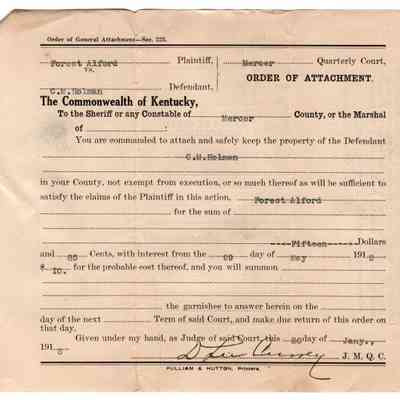 Order of General Attachment—Sec. 223.
Forest Alford Plaintiff, Mercer Quarterly Court,
vs. ORDER OF ATTACHMENT.
C.M.Holman Defendant,
The Commonwealth of Kentucky,
To the Sheriff or any Constable of Mercer County, or the Marshal
of :
You are commanded to attach and safely keep the property of the Defendant
C.M.Holman
in your County, not exempt from execution, or so much thereof as will be sufficient to
satisfy the claims of the Plaintiff in this action, Forest Alford
for the sum of
----Fifteen---- Dollars
and 85 Cents, with interest from the 29 day of May 191
$ 10. for the probable cost thereof, and you will summon
the garnishee to answer herein on the
day of the next Term of said Court, and make due return of this order on
that day.
Given under my hand, as Judge of said Court, this day of Jany.,
191
J. M. Q. C.
PULLIAM & HUTTON, Printers.